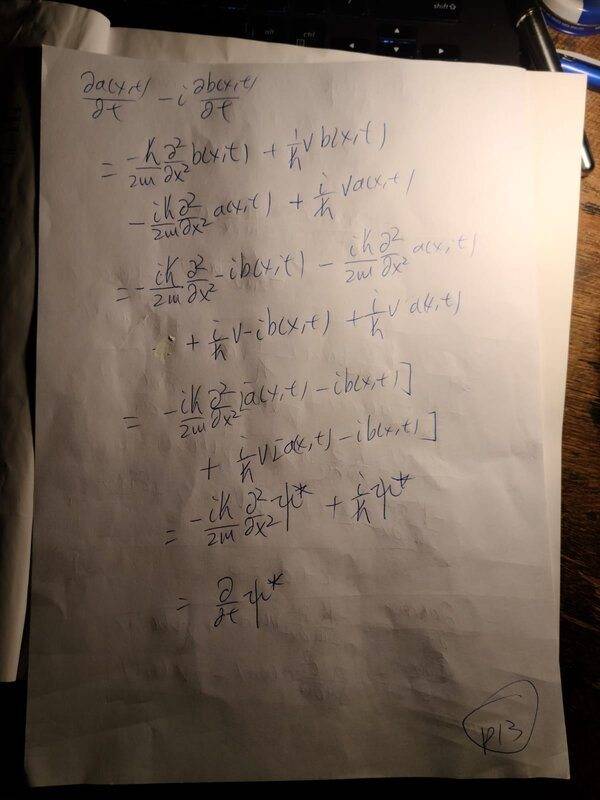 ∂a(x,t)/∂t - i ∂b(x,t)/∂t
= -ħ/2m ∂²/∂x² b(x,t) + 1/ħ V b(x,t)
- iħ/2m ∂²/∂x² a(x,t) + i/ħ V a(x,t)
= - iħ/2m ∂²/∂x² - ib(x,t) - iħ/2m ∂²/∂x² a(x,t)
+ i/ħ V - ib(x,t) + i/ħ V a(x,t)
= -iħ/2m ∂²/∂x² [a(x,t) - ib(x,t)]
+ i/ħ V[a(x,t) - ib(x,t)]
= -iħ/2m ∂²/∂x² ψ* + i/ħ ψ*
= ∂/∂t ψ*
p13